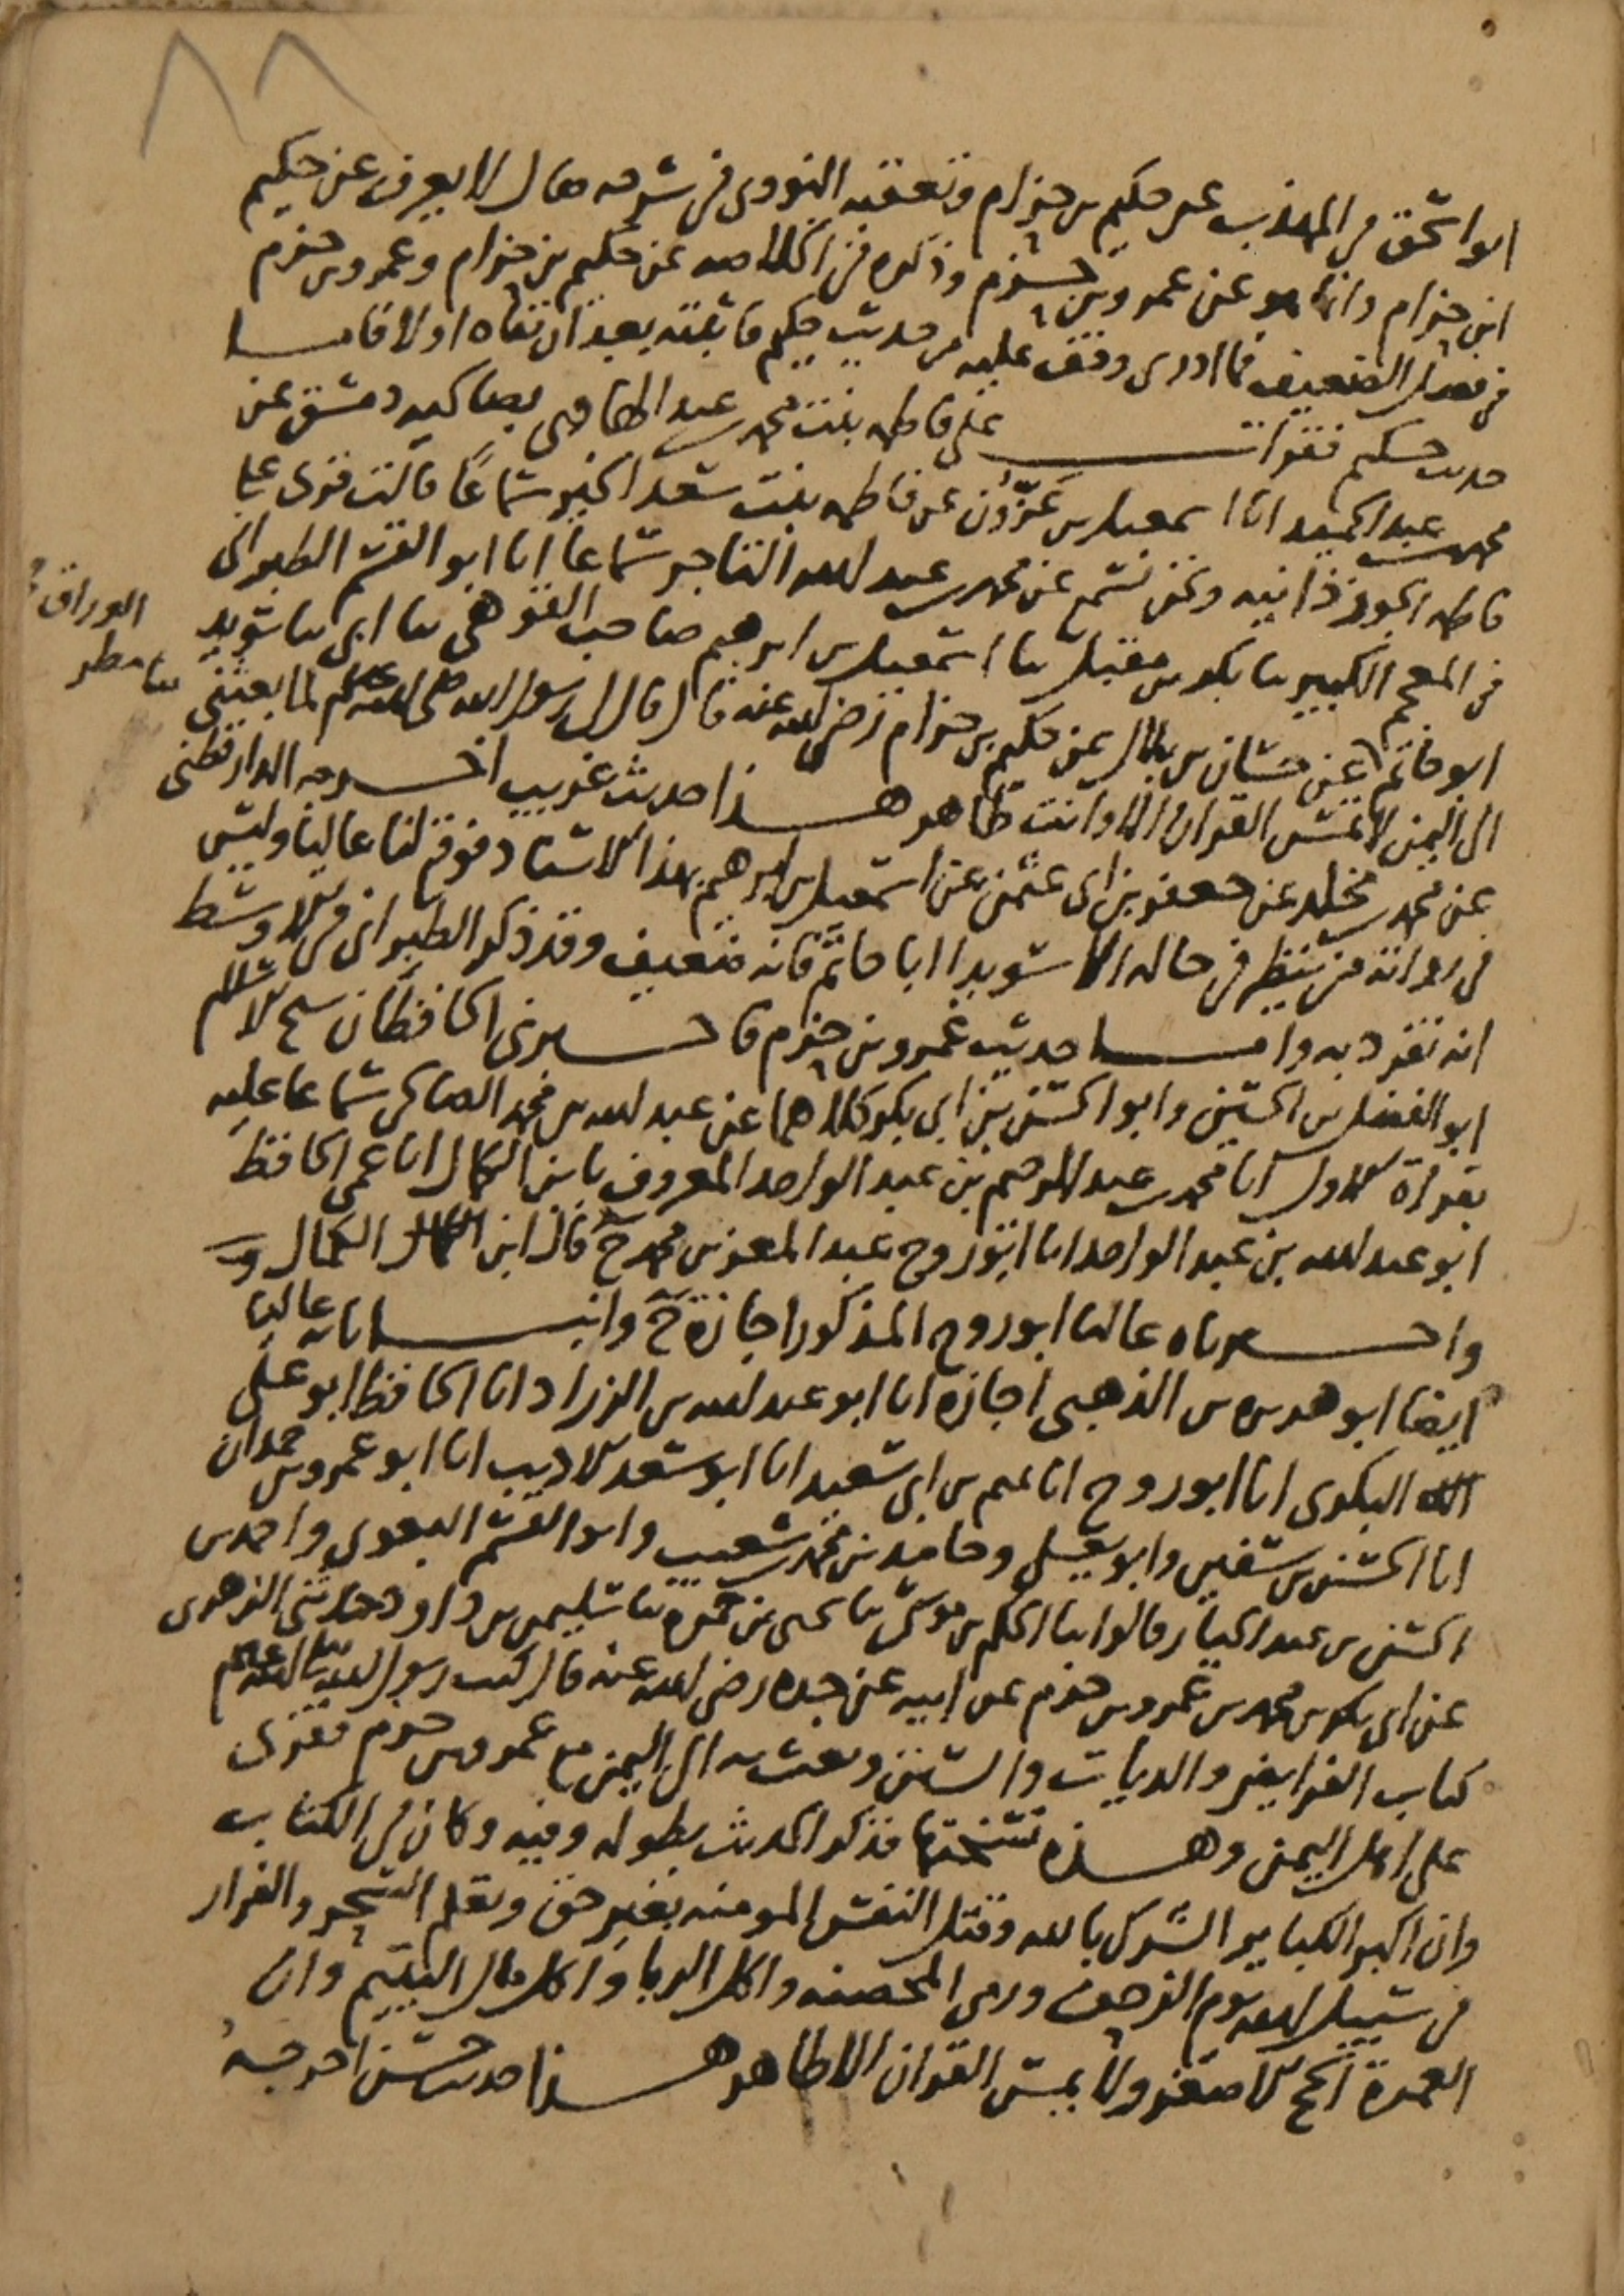 ٨٨
ابو اسحق في المهذب عن حكيم بن حزام وتعقبه النووي في شرحه فقال لا يعرف عن حكيم
ابن حزام وانما هو عن عمرو بن حزم وذكره في الخلاصه عن حكيم بن حزام وعمرو بن حزم
في فصل الضعيف فما ادري وقف عليه من حديث حكيم فاثبته بعد ان نفاه او لا فاما
حديث حكيم فقرات على فاطمه بنت محمد بن عبد الهادي بصالحيه دمشق عن
محمد بن عبد الحميد انا اسمعيل بن عزون عن فاطمه بنت سعد الخير سماعا قالت قرئ على
فاطمه الجوزدانيه ونحن نسمع عن محمد بن عبد الله التاجر سماعا انا ابو القسم الطبراني
في المعجم الكبير ثنا بكر بن مقبل ثنا اسمعيل بن ابرهيم صاحب القوهي ثنا ابي ثنا سويد
ابو حاتم عن حسان بن بلال عن حكيم بن حزام رضي الله عنه قال قال لي رسول الله صلى الله عليه وسلم لما بعثني
الوراق
ثنا مطر
الى اليمن لا تمس القران الا وانت طاهر هذا حديث غريب اخرجه الدارقطني
عن محمد بن مخلد عن جعفر بن ابي عثمن عن اسمعيل بن ابرهيم بهذا الاسناد فوقع لنا عاليا وليس
في رواته من ينظر في حاله الا سويدا ابا حاتم فانه ضعيف وقد ذكر الطبراني في الاوسط
انه تفرد به واما حديث عمرو بن حزم فاخبرني الحافظان شيخ الاسلام
ابو الفضل بن الحسين وابو الحسن بن ابي بكر كلاهما عن عبد الله بن محمد الصالحي سماعا عليه
بقراة الاول انا محمد بن عبد الرحيم بن عبد الواحد المعروف بابن الكمال انا عمي الحافظ
ابو عبد الله بن عبد الواحد انا ابو روح عبد المعز بن محمد ح قال ابن الكمال
واخبرناه عاليا ابو روح المذكور اجازة ح وانبانا به عاليا
ايضا ابو هريره بن الذهبي اجازه انا ابو عبد الله بن الزراد انا الحافظ ابو علي
البكري انا ابو روح انا تميم بن ابي سعيد انا ابو سعد الاديب انا ابو عمرو بن حمدان
انا الحسن بن سفين وابو يعلى وحامد بن محمد بن شعيب وابو القسم البغوي واحمد بن
الحسن بن عبد الجبار قالوا ثنا الحكم بن موسى ثنا يحيى بن حمزه ثنا سليمن بن داود حدثني الزهري
عن ابي بكر بن محمد بن عمرو بن حزم عن ابيه عن جده رضي الله عنه قال كتب رسول الله صلى الله عليه وسلم
كتاب الفرايض والديات والسنن وبعث به الى اليمن مع عمرو بن حزم فقرئ
على اهل اليمن وهذه نسختها فذكر الحديث بطوله وفيه وكان في الكتاب
وان اكبر الكباير الشرك بالله وقتل النفس المومنه بغير حق وتعلم السحر والفرار
في سبيل الله يوم الزحف ورمي المحصنه واكل الربا واكل مال اليتيم وان
العمرة الحج الاصغر ولا يمس القران الا طاهر هذا حديث حسن اخرجه